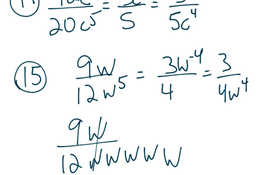 20c⁵ = 5 = 5c⁴
(15) 9w/12w⁵ = 3w⁻⁴/4 = 3/4w⁴
9w/12wwwww